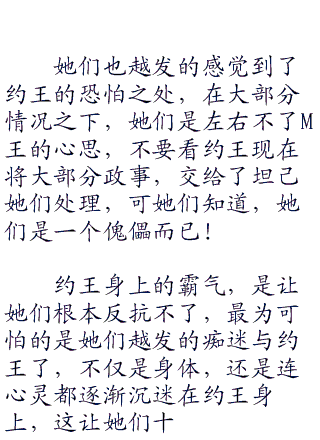 她们也越发的感觉到了
约王的恐怕之处，在大部分
情况之下，她们是左右不了M
王的心思，不要看约王现在
将大部分政事，交给了坦己
她们处理，可她们知道，她
们是一个傀儡而已！
约王身上的霸气，是让
她们根本反抗不了，最为可
怕的是她们越发的痴迷与约
王了，不仅是身体，还是连
心灵都逐渐沉迷在约王身
上，这让她们十